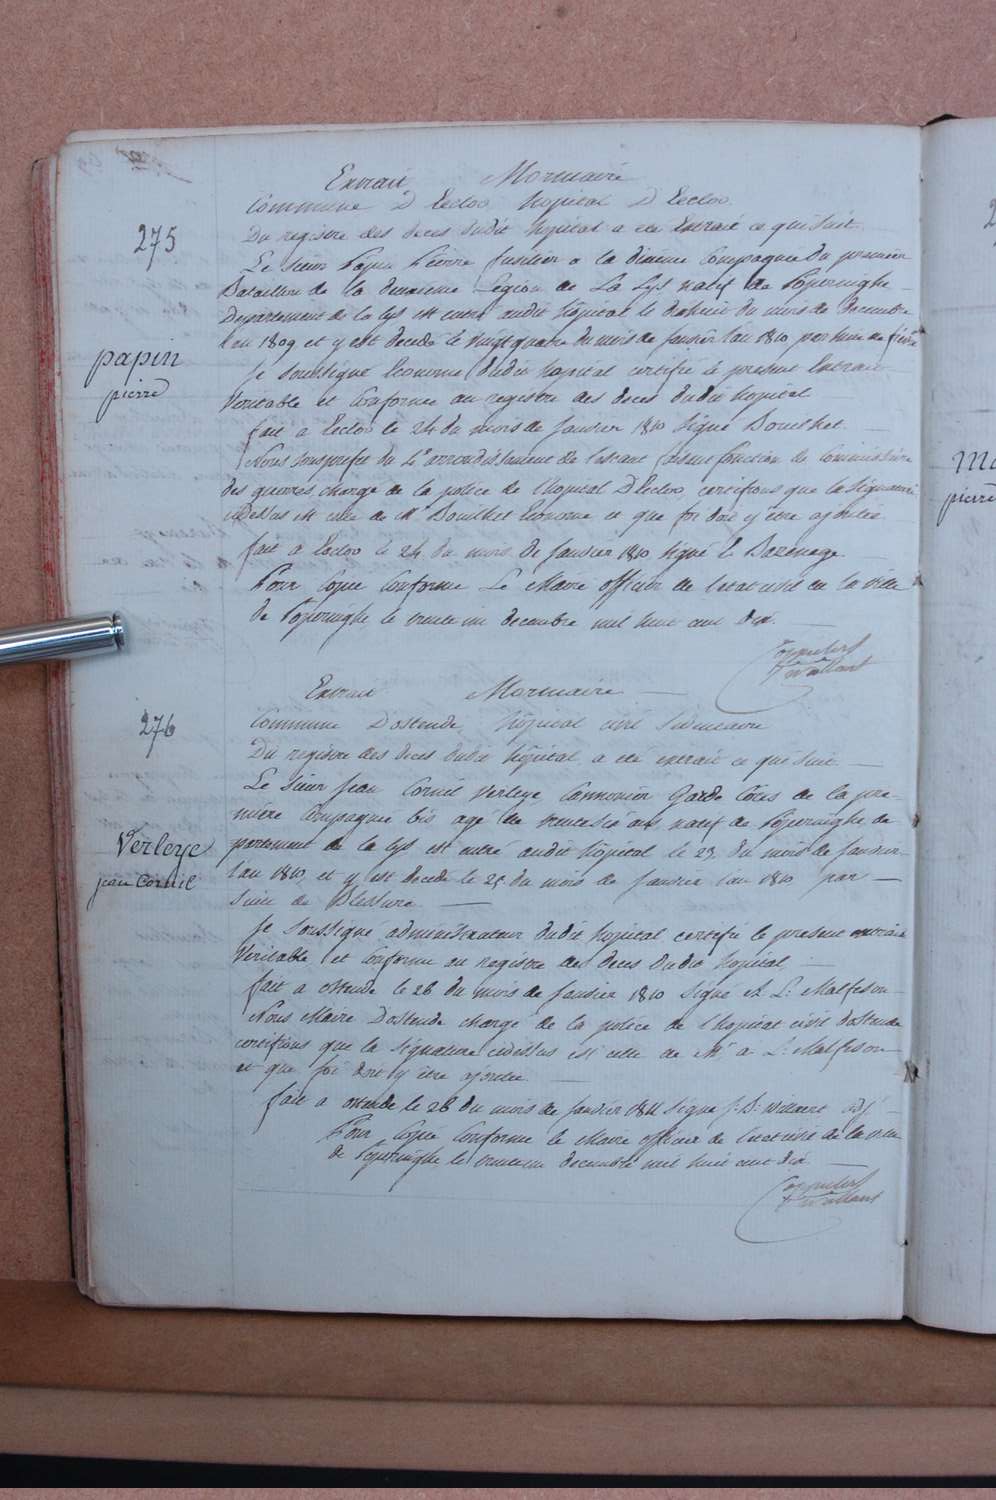 275
Extrait Mortuaire
Commune D Eecloo hopital D Eecloo
Du registre des deces dudit hôpital a été Extrait ce qui suit
Le Sieur Papin Pierre fusilier a la dixieme Compagnie du premier
Bataillon de la deuxieme Legion de La Lys natif de Poperinghe
Departement de la lys est entré audit hôpital le dixhuit du mois de decembre
l'an 1809 et y est decedé le vingt quatre du mois de Janvier l'an 1810 par suite de fievre
papin
pierre
Je soussigné Econome dudit hopital certifie le present Extrait
Veritable et Conforme au registre des deces dudit hopital
fait a Eecloo le 24 du mois de Janvier 1810 Signé Bouilhet.
Nous sousprefet du 4e arrondissement de l'escaut faisant fonction de Commissaire
des guerres, chargé de la police de l'hopital D'Eecloo, certifions que la Signature
cidessus est celle de Mr Bouilhet Econome et que foi doit y être ajoutée
fait a Eecloo le 24 du mois de Janvier 1810 signé le Bazenage
Pour Copie Conforme Le Maire officier de l'etat civil de la ville
de Poperinghe le trente un decembre mil huit cent dix.
276
Extrait Mortuaire
Commune Dostende hôpital civil
Du registre des deces dudit hôpital a été extrait ce qui suit
Le Sieur Jean Cornil Verleye Cannonier Garde Côtes de la pre-
miere Compagnie bis agé de ans natif de Poperinghe de
partement de la lys est entré audit hôpital le 23 du mois de Janvier
l'an 1810, et y est decedé le 25 du mois de Janvier l'an 1810 par
Suite de Blessure
Verleye
jean Cornil
Je Soussigné administrateur dudit hopital certifie le présent extrait
Veritable et Conforme au registre des deces dudit hopital
fait a ostende le 26 du mois de Janvier 1810 Signé A L: Malfeson
Nous Maire Dostende chargé de la police de l'hopital civil dostende
certifions que la Signature cidessus est celle de Mr a L: Malfeson
et que foi doit y être ajoutée
fait a ostende le 26 du mois de Janvier Signé J: B: adj
Pour Copie Conforme le Maire officier de l'etat civil de la ville
de Poperinghe le trente un decembre mil huit cent dix